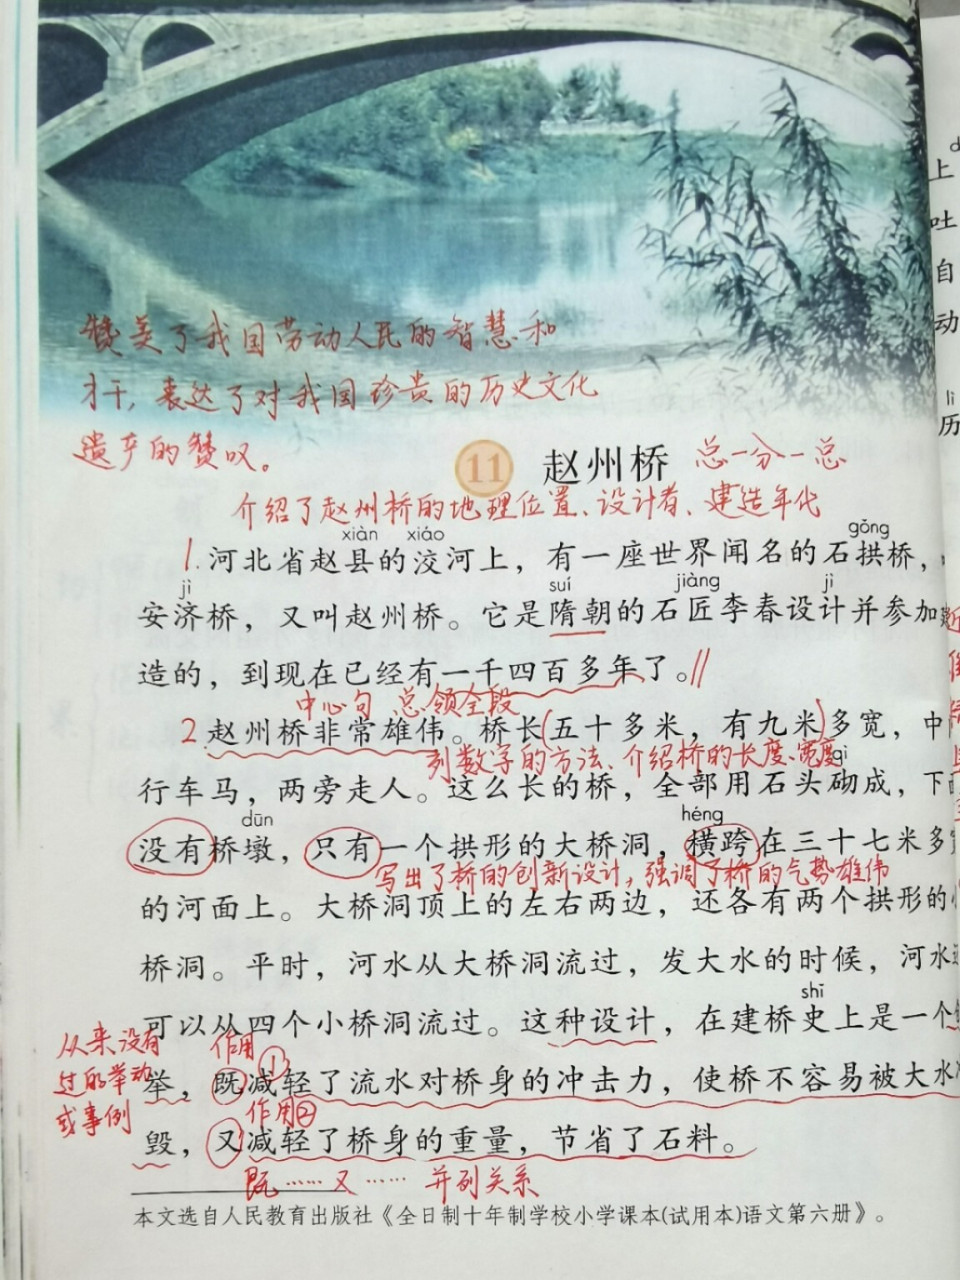 赞美了我国劳动人民的智慧和
才干,表达了对我国珍贵的历史文化
遗产的赞叹。
11 赵州桥 总一分一总
介绍了赵州桥的地理位置、设计者、建造年代
xiàn xiáo gǒng
1.河北省赵县的洨河上，有一座世界闻名的石拱桥，
jì suí jiàng jì
安济桥，又叫赵州桥。它是隋朝的石匠李春设计并参加
造的，到现在已经有一千四百多年了。//
中心句 总领全段
2.赵州桥非常雄伟。桥长(五十多米，有九米)多宽，中
列数字的方法、介绍桥的长度、宽度
qì
行车马，两旁走人。这么长的桥，全部用石头砌成，下
dūn héng
没有桥墩，只有一个拱形的大桥洞，横跨在三十七米多
写出了桥的创新设计，强调了桥的气势雄伟
的河面上。大桥洞顶上的左右两边，还各有两个拱形的
桥洞。平时，河水从大桥洞流过，发大水的时候，河水
shǐ
可以从四个小桥洞流过。这种设计，在建桥史上是一个
从来没有
过的举动
或事例
作用①
举，既减轻了流水对桥身的冲击力，使桥不容易被大水
作用②
毁，又减轻了桥身的重量，节省了石料。
既……又…… 并列关系
本文选自人民教育出版社《全日制十年制学校小学课本(试用本)语文第六册》。
上
吐
自
动
lì
历